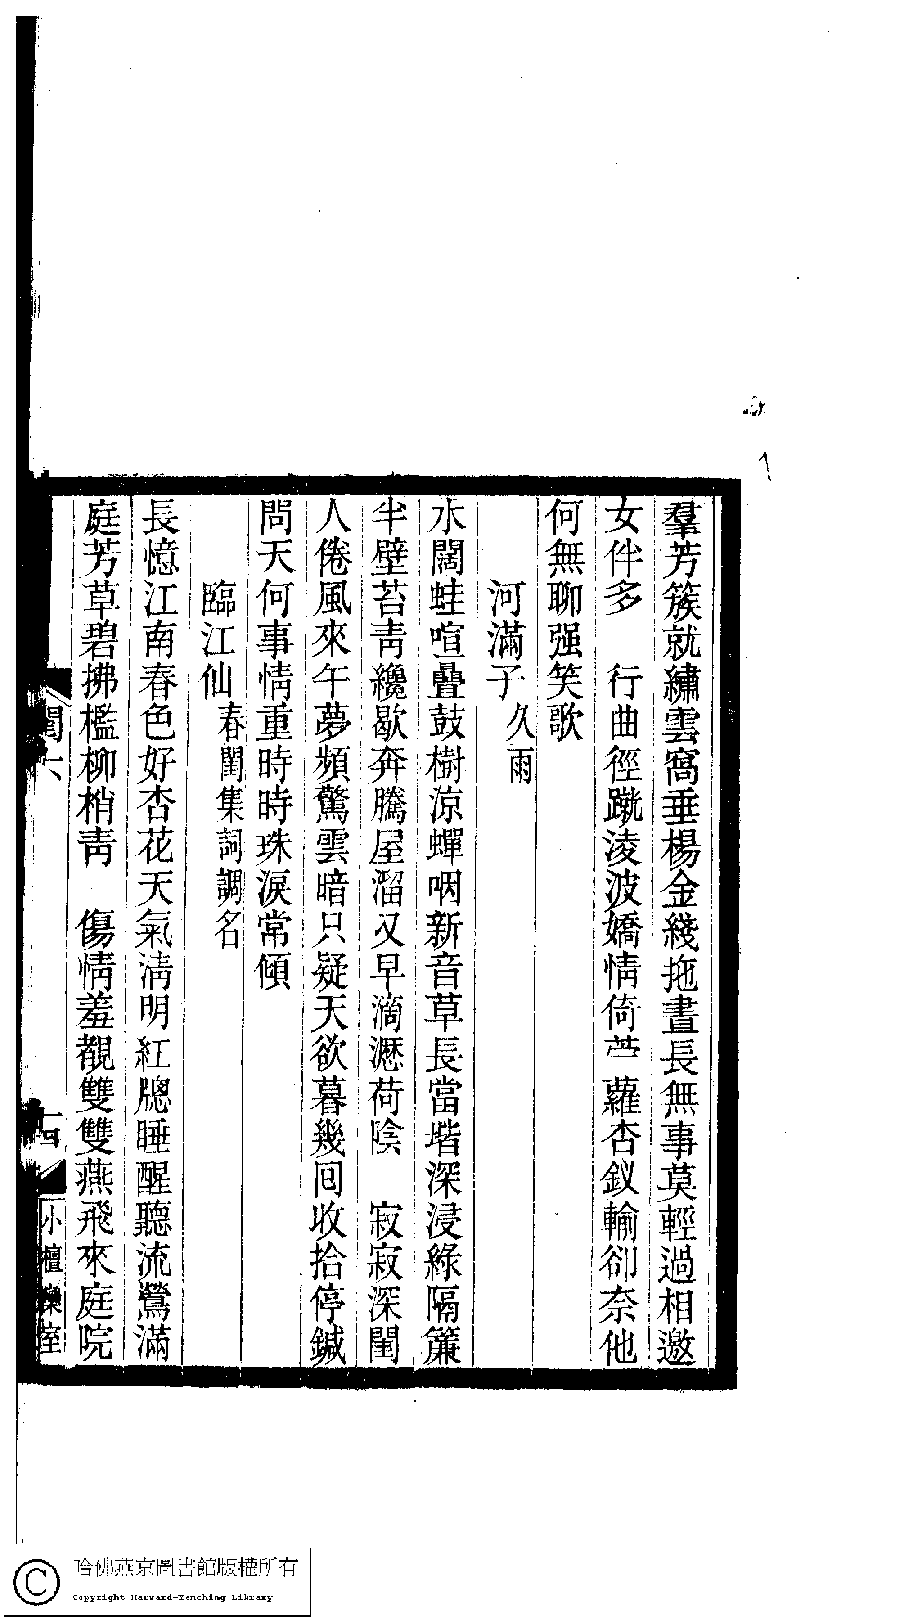 羣芳簇就繡雲窩垂楊金綫拖晝長無事莫輕過相邀
女伴多　行曲徑蹴淩波嬌情倚薜蘿杏釵輸卻奈他
何無聊强笑歌
河滿子久雨
水闊蛙喧疊鼓樹涼蟬咽新音草長當堦深浸綠隔簾
半壁苔靑纔歇奔騰屋溜又早滴瀝荷陰　寂寂深閨
人倦風來午夢頻驚雲暗只疑天欲暮幾回收拾停鍼
問天何事情重時時珠淚常傾
臨江仙春閨集詞調名
長憶江南春色好杏花天氣淸明紅牕睡醒聽流鶯滿
庭芳草碧拂檻柳梢靑　傷情羞覩雙雙燕飛來庭院
閨六
十四
小檀欒室
哈佛燕京圖書館版權所有
Copyright Harvard-Yenching Library